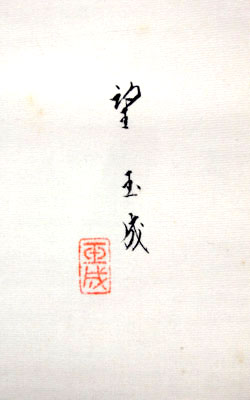 望玉成
玉成